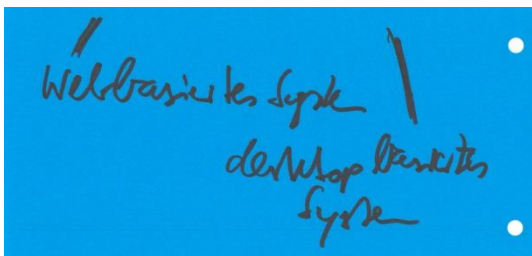 Webbasiertes System
desktop basiertes
System